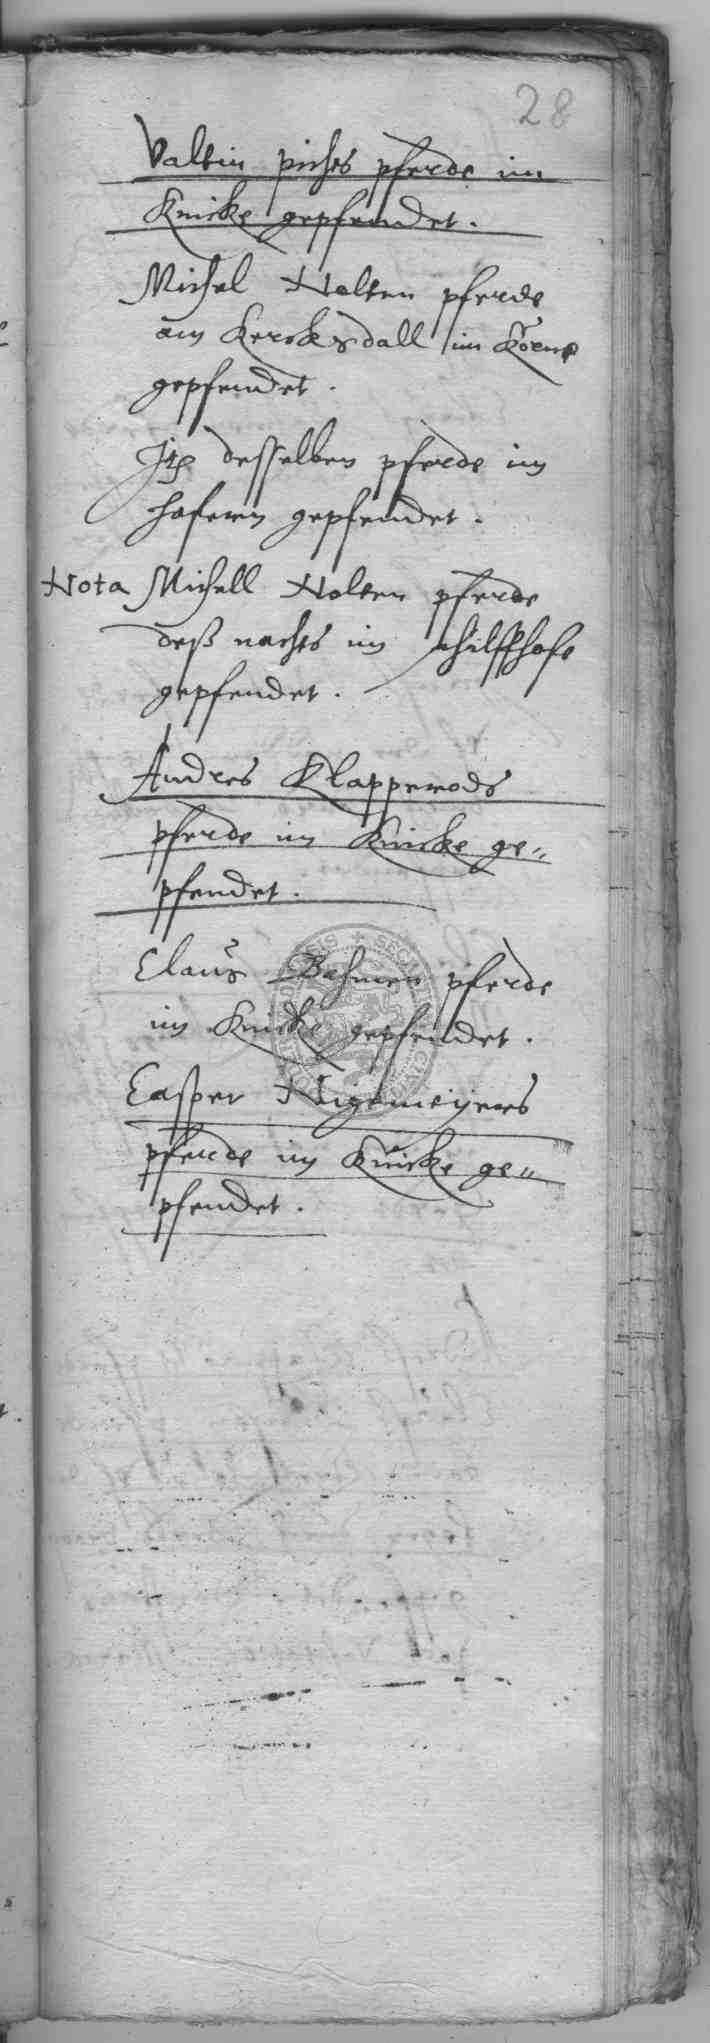 28
Valtin pichs pferde im
Knicke gepfendet.
Michel Nolten pferde
am Kercksdall im Körne
gepfendet.
Itz desselben pferde im
hafern gepfendet.
Nota Michell Nolten pferde
deß nachts im
gepfendet.
Andres Klapperods
pferde im Knicke ge„
pfendet.
Claus Bahmen pferde
im Knicke gepfendet.
Casper Nigemeijers
pferde im Knicke ge„
pfendet.